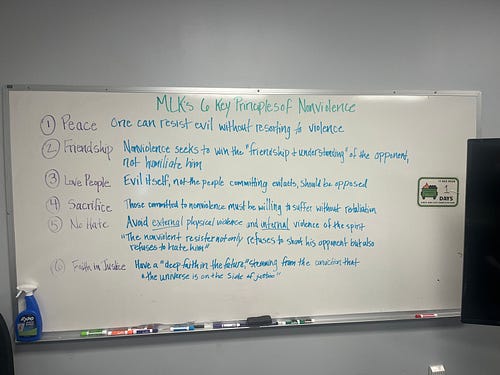 MLK's 6 Key Principles of Nonviolence
① Peace One can resist evil without resorting to violence
② Friendship Nonviolence seeks to win the "friendship + understanding" of the opponent,
not humiliate him
③ Love People Evil itself, not the people committing evil acts, should be opposed
④ Sacrifice Those committed to nonviolence must be willing to suffer without retaliation
⑤ No Hate Avoid external physical violence and internal violence of the spirit
"The nonviolent resister not only refuses to shoot his opponent but also
refuses to hate him"
⑥ Faith in Justice Have a "deep faith in the future," stemming from the conviction that
"the universe is on the side of justice"
1
DAYS
EXPO